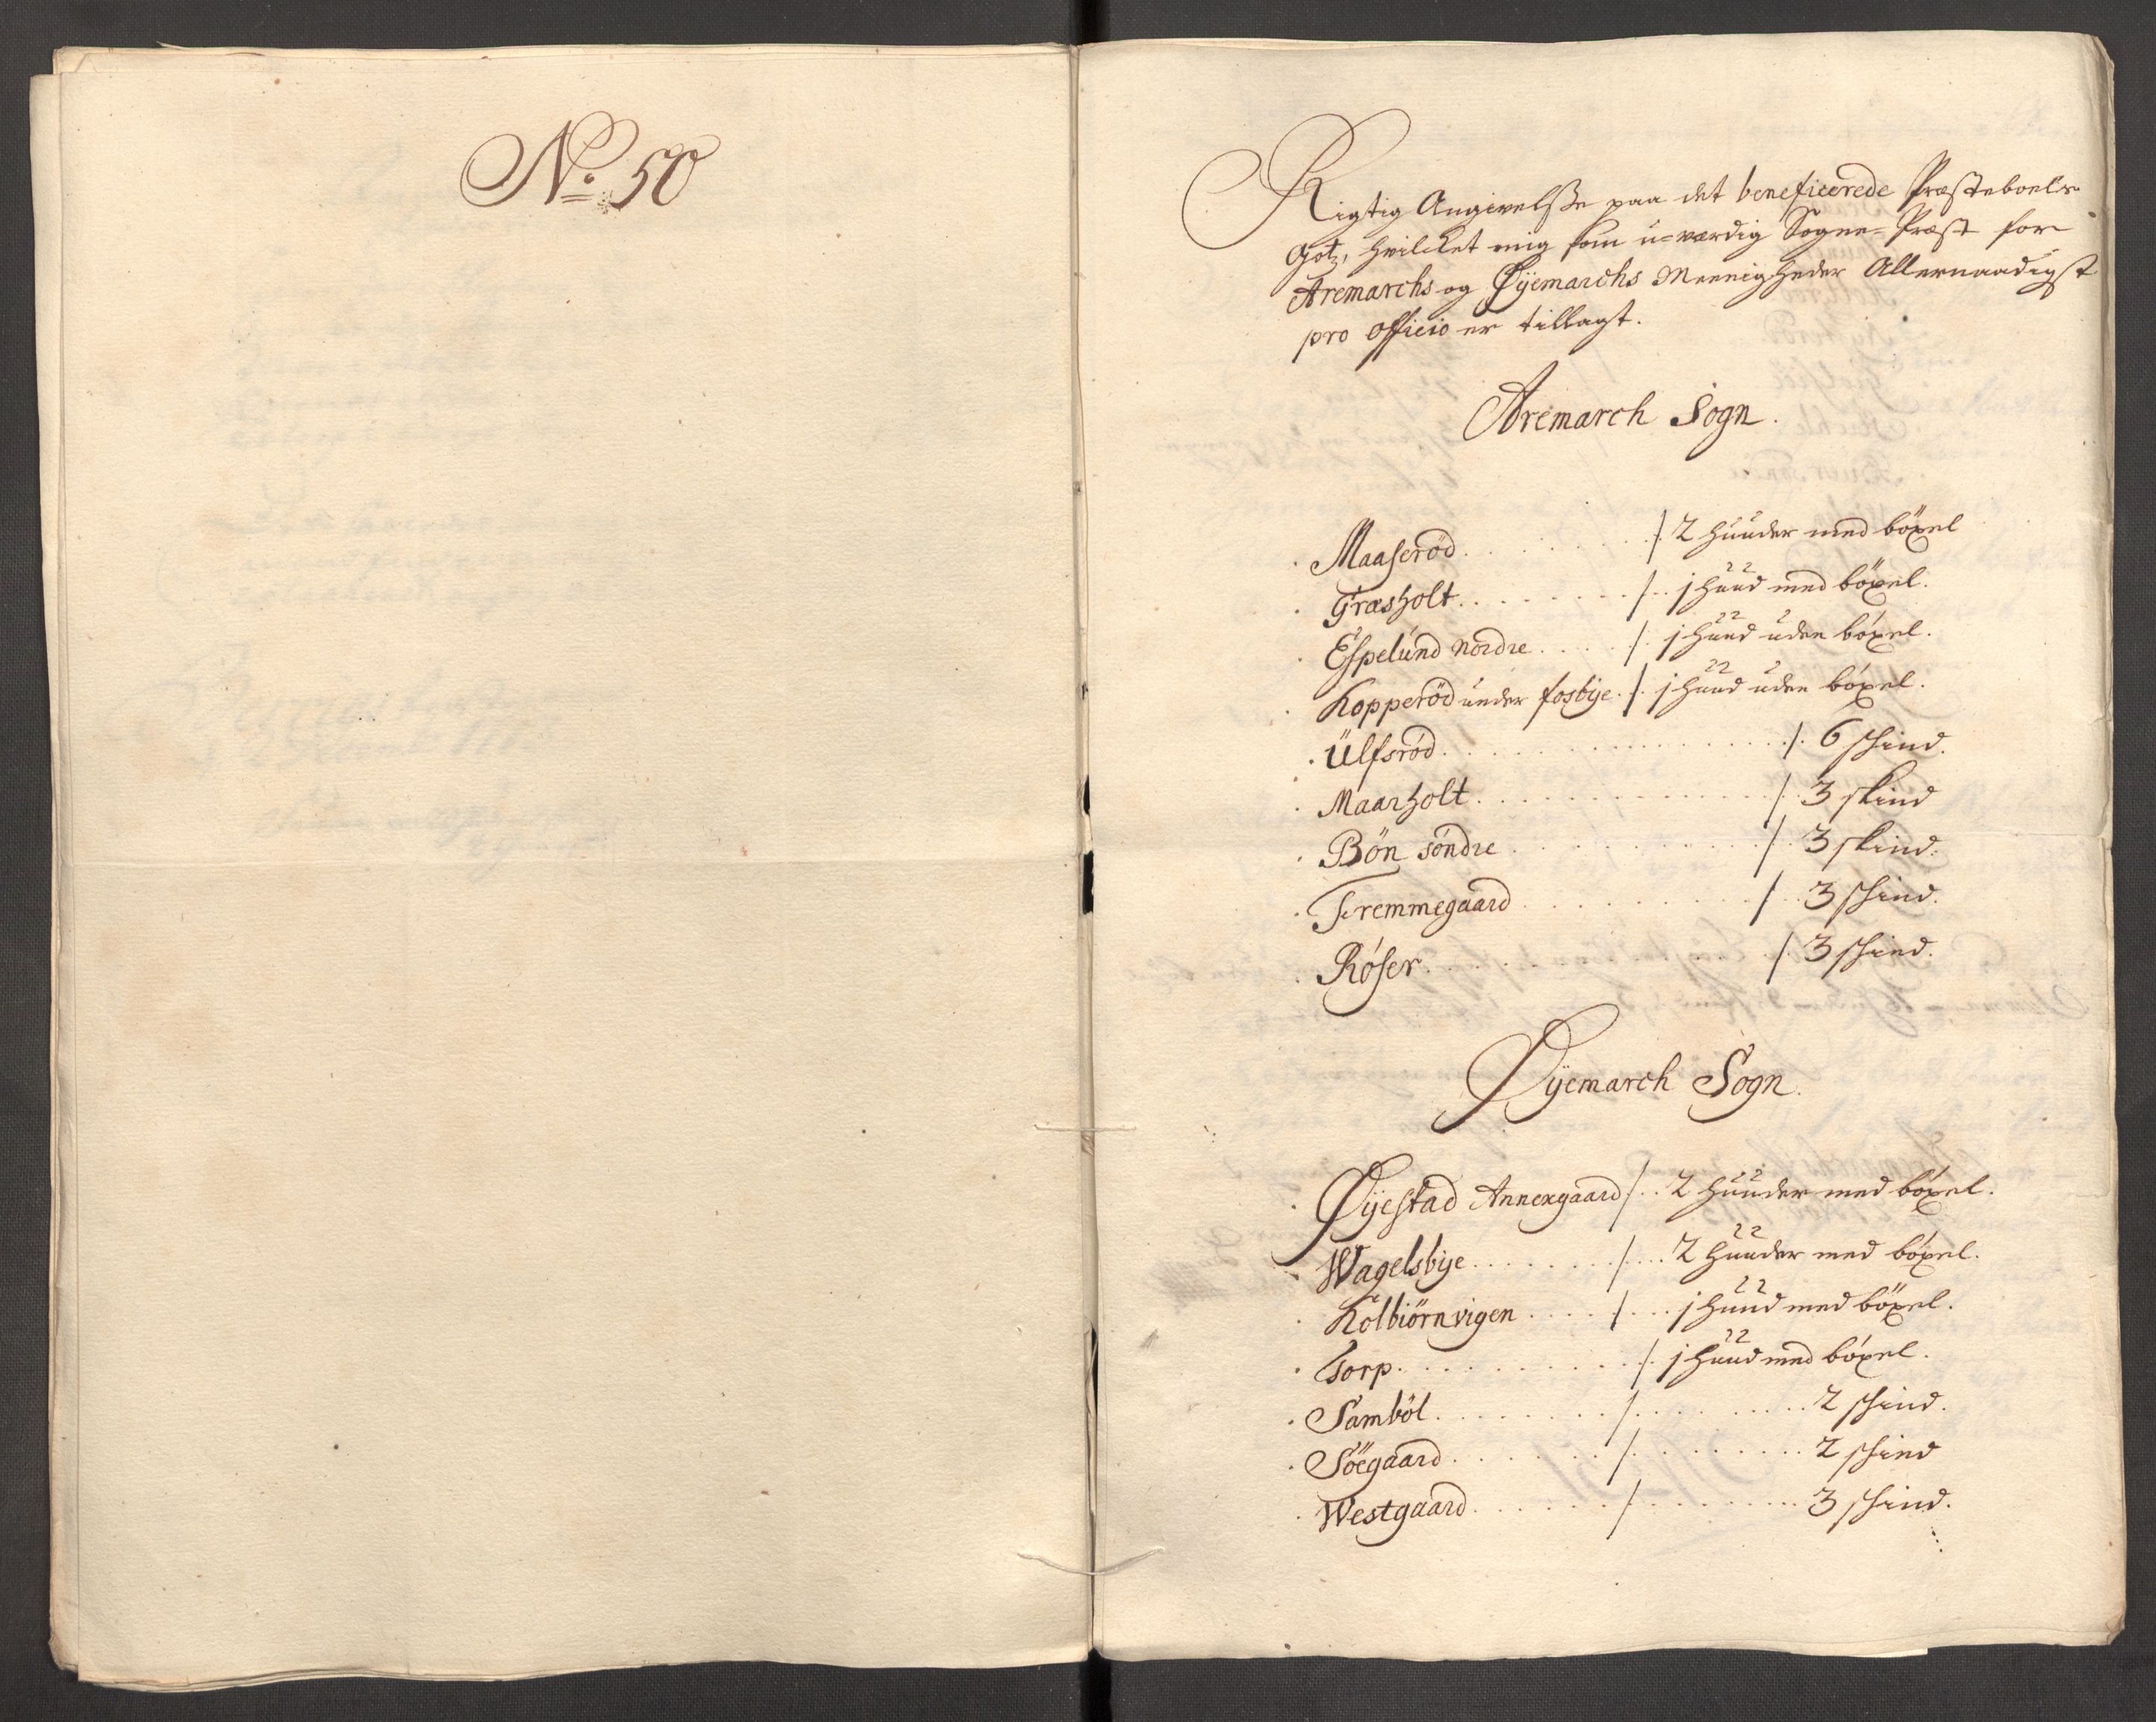 No. 50
Rigtig Angivelse paa det beneficerede Præsteboels
Gotz, hvilcket mig som u-værdig Sogne-Præst for
Aremarchs og Øÿemarchs Meenigheder Allernaadigst
pro officio er tillagt.
Aremarch Sogn.
Maaseröd . . . . . . . /. 2 huuder med böxel
Græsholt . . . . . . . /. . j huud med böxel.
Espelund nordre . . . . /. j huud uden böxel.
Kopperöd under fosbÿe . /. j huud uden böxel.
Ulfsröd . . . . . . . /. 6 schind.
Maarholt . . . . . . . / 3 skind
Bön söndre . . . . . . . / 3 skind.
Fremmegaard . . . . . . . / . 3 schind.
Röser . . . . . . . / 3 schind.
Øÿemarch Sogn.
Øÿestad Annexgaard /. . 2 huuder med böxel.
Wagelsbÿe . . . . . . . /. . . 2 huuder med böxel.
Kolbiörnvigen . . . . / . . . j huud med böxel.
Torp . . . . . . . /. j huud med böxel.
Samböl . . . . . . . / . . . . . . . 2 schind.
Söegaard . . . . . . . / . . . . . . . 2 schind
Westgaard . . . . . . / . . . . . . . 3 schind.